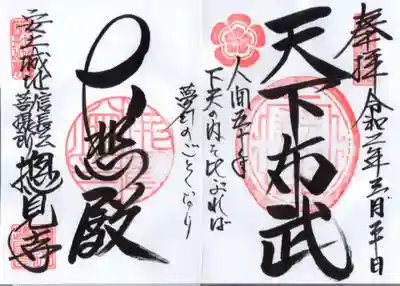 奉拝
天下布武
令和二年三月
人間五十年
下天の内を比ぶれば
夢幻のごとくなり
悲殿
安土城址
信長公
菩提所
摠見寺